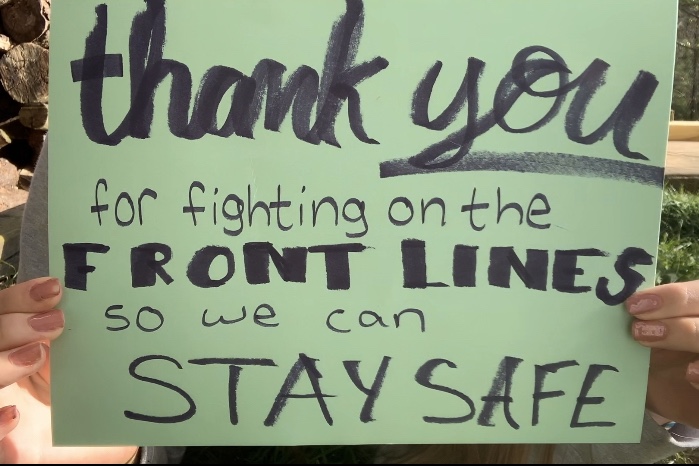 thank you
for fighting on the
FRONT LINES
so we can
STAY SAFE